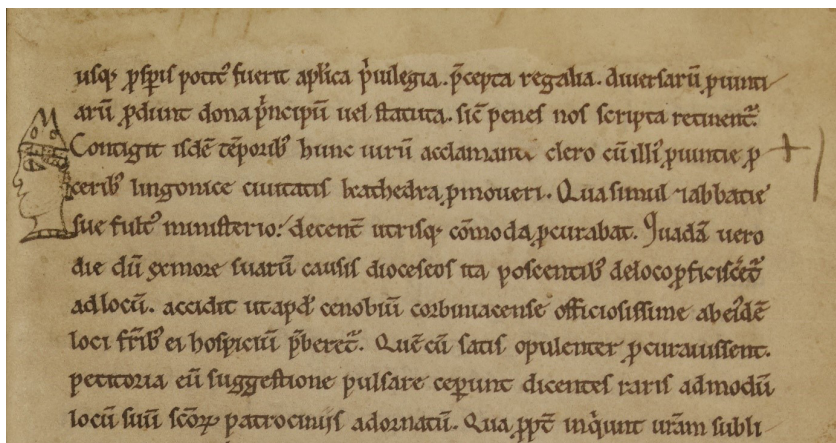 usq; ꝓspis potit᷒ fuerit aplica p̾uilegia. p̄cepta regalia. diuersarū ꝓuinti
arū ꝓdunt dona p̾ncipū uel statuta. sic̄ penes nos scripta retinent᷑.
Contigit isdē tēporib᷒ hunc uirū acclamante clero cū illi᷒ ꝓuintie ꝓ
cerib᷒ lingonice ciuitatis kathedra ꝓmoueri. Qua simul ⁊ abbatie
sue fult᷒ ministerio: decent̄ utrisq; cōmoda ꝓcurabat. Quadā uero
die dū ex more suarū causis dioceseos ita poscentib᷒ de loco ꝓficiscēt᷑
ad locū. accidit ut apd̄ cenobiū corbiniacense officiosissime ab eidē
loci fr̄ib᷒ ei hospiciū p̄beret᷑. Quē cū satis opulenter ꝓcurauissent.
petitoria eū suggestione pulsare ceperunt dicentes raris admodū
locū suū sc̄oꝝ patrocinijs adornatū. Qua ꝓpt̄ inq̾unt ur̄am subli